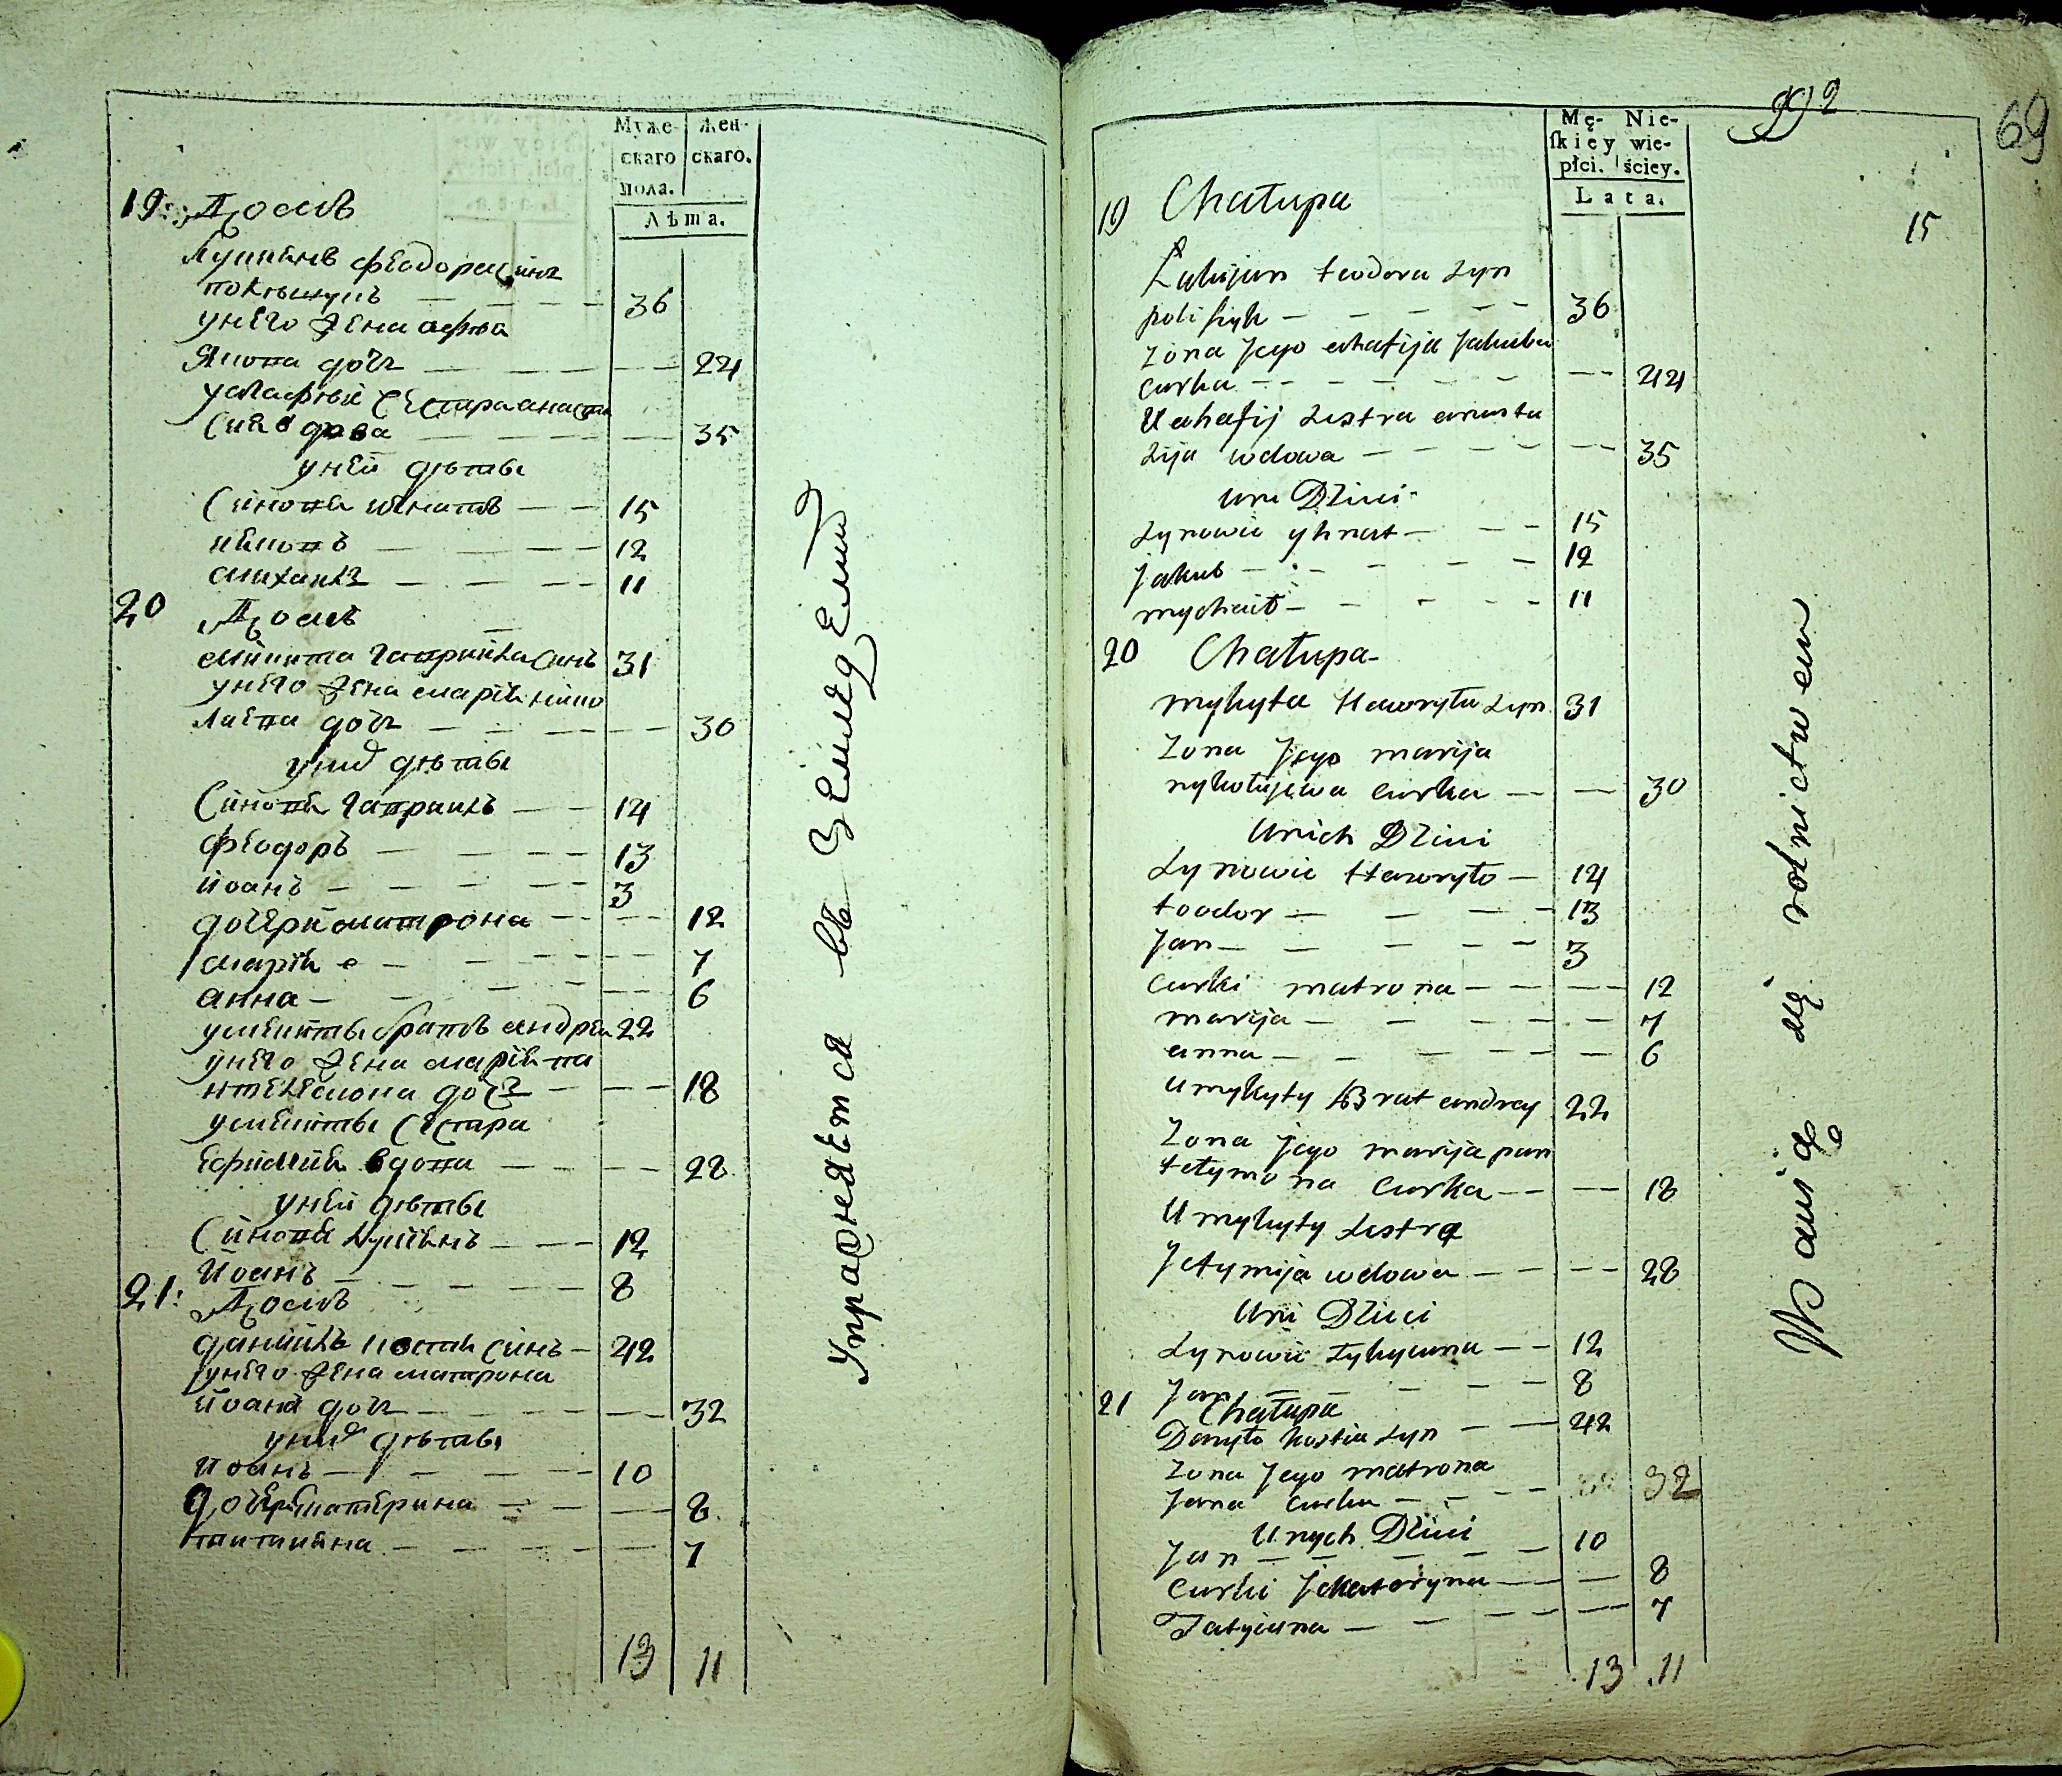 Муже-
скаго
пола.
Жен-
скаго.
Лѣта.
19: Домъ
Лукиянъ феодора синъ
36
унего жена агафия
Якова дочъ — — — 24
уагафіи сестра анаста
сия вдова — — — 35
уней дѣты
Синовя игнатъ — — 15
яковъ — — — 12
михаилъ — — — 11
20 Домъ
микита гавриила синъ 31
унего жена марія нико
лаева дочъ — — — 30
уних дѣты
Синовя гавриилъ — — 14
феодоръ — — — 13
іоанъ — — — 3
дочери матрона — — 12
марія — — — 7
анна — — — 6
умикиты братъ андрей 22
унего жена марія па
нтелемона дочъ — — 18
умикиты сестра
ефимия вдова — — — 28
уней дѣты
Синовя лукиянъ — — 12
Иоанъ — — — 8
21: Домъ
даниилъ костя синъ — 42
унего жена матрона
іоана дочъ — — — 32
уних дѣты
іоанъ — — — 10
дочери катерина — — 8
татияна — — — 7
13 11
Упражняется въ Земледелии
992
69
15
Mę-
ſkiey
płci.
Nie-
wie-
ściey.
Lata.
19 Chałupa
Łukijan teodora syn
— — — 36
zona Jego ahafija Jakuba
curka — — — 24
U ahafij sestra anasta
zija wdowa — — — 35
Uni Dzieci
synowie yhnat — — 15
Jakub — — — 12
mychaił — — — 11
20 Chałupa
mykyta Hawryła syn 31
Zona Jego marija
nykołajewa curka — — 30
Unich Dzieci
Synowie Hawryło — 14
teodor — — — 13
Jan — — — 3
curki matrona — — — 12
marija — — — 7
anna — — — 6
U mykyty Brat andrey 22
Zona jego marija pan
tełymona curka — — 18
U mykyty sestra
Jefymija wdowa — — — 28
Uni Dzieci
Synowie Łukijana — — 12
Jan — — — 8
21 Chałupa
Danyło kostia syn — — 42
Zona Jego matrona
Jana curka — — — 32
Unych Dzieci
Jan — — — 10
curki Jekateryna — — 8
Tatyana — — — 7
13 11
Bawią się rolnictwem